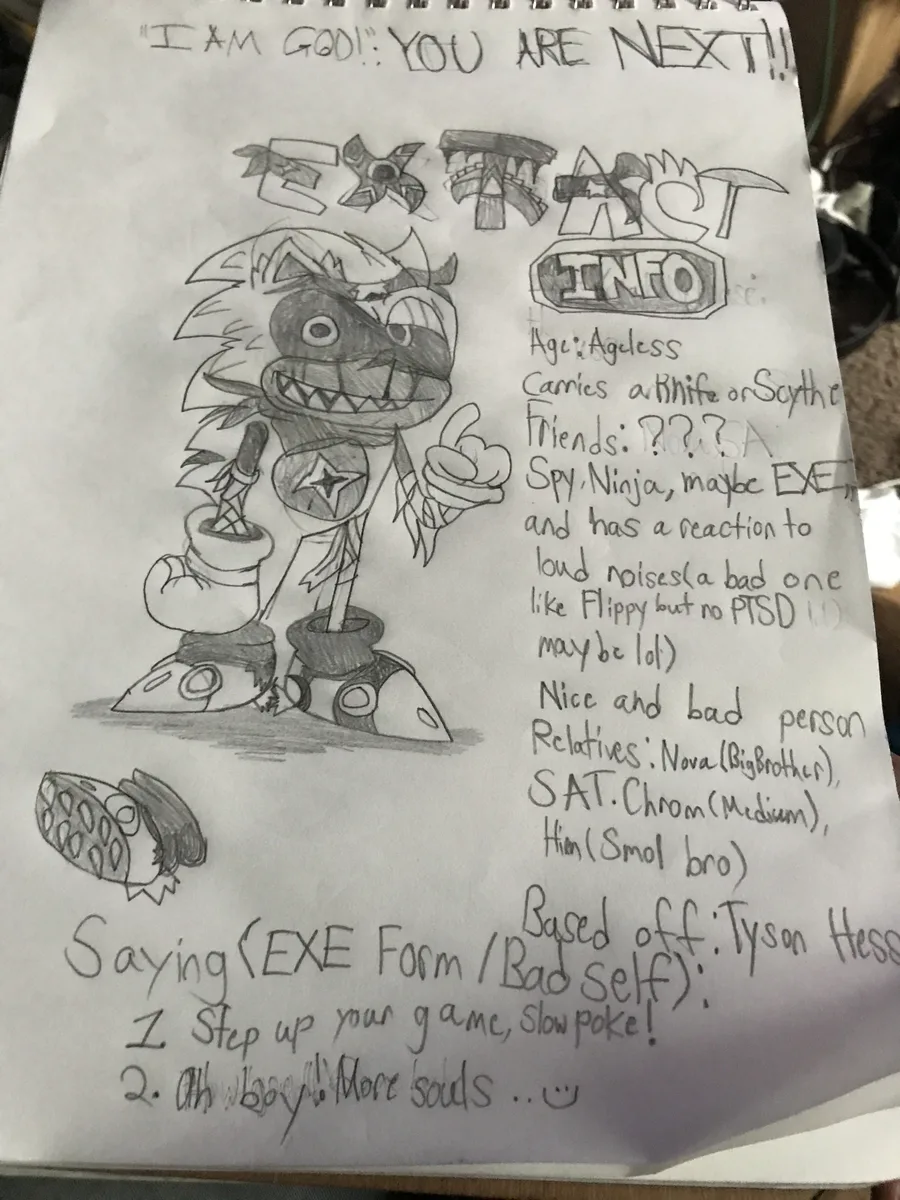 "I AM GOD!": YOU ARE NEXT!!
EXTRACT
INFO
Age: Ageless
Carries a Knife or Scythe
Friends: ???
Spy, Ninja, maybe EXE,
and has a reaction to
loud noises(a bad one
like Flippy but no PTSD
maybe lol)
Nice and bad person
Relatives: Nova(BigBrother),
SAT. Chrom(Medium),
Him(Smol bro)
Based off: Tyson Hess
Saying(EXE Form/Bad self):
1. Step up your game, slowpoke!
2. Ah boy! More souls ..:)